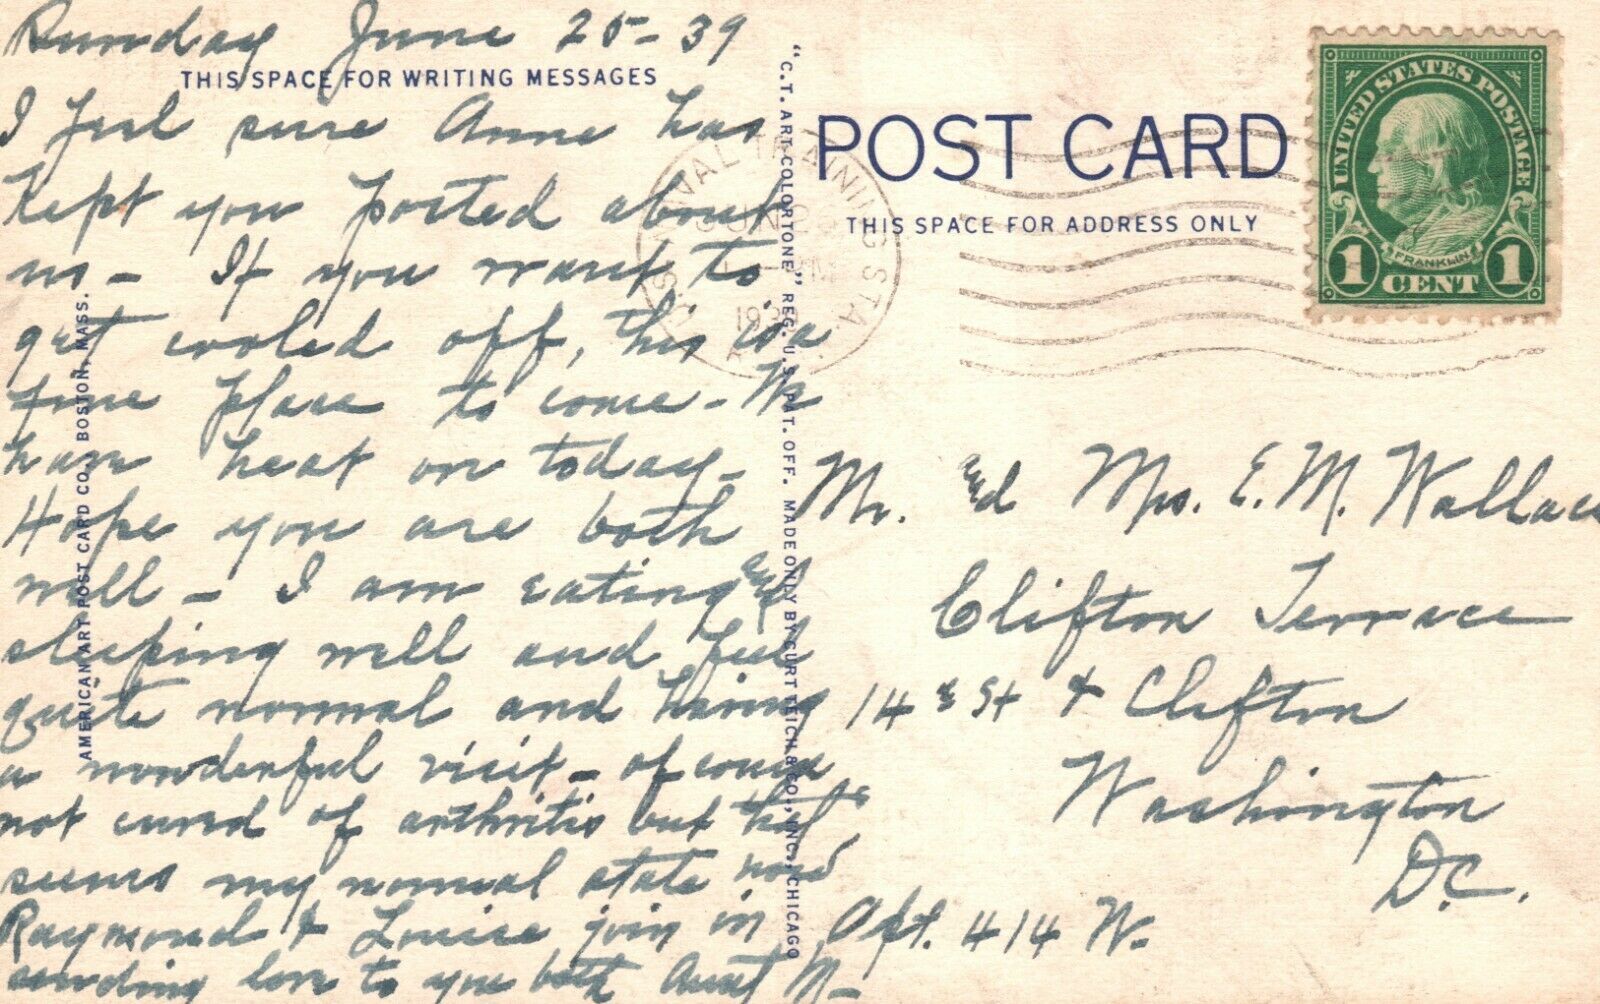 Sunday June 25-39
THIS SPACE FOR WRITING MESSAGES
I feel sure Anne has
kept you posted about
us - If you want to
get cooled off, this is a
fine place to come - We
have heat on today -
Hope you are both
well - I am eating and
sleeping well and feel
quite normal and having
a wonderful visit - of course
not cured of arthritis but that
seems my normal state now
Raymond & Louise join in
sending love to you both Aunt M-
AMERICAN ART POST CARD CO., BOSTON, MASS.
"C.T. ART-COLORTONE" REG. U.S. PAT. OFF. MADE ONLY BY CURT TEICH & CO., INC., CHICAGO
POST CARD
THIS SPACE FOR ADDRESS ONLY
NAVAL TRAINING STA
JUN
PM
UNITED STATES POSTAGE
FRANKLIN
1 CENT 1
Mr. and Mrs. E. M. Wallace
Clifton Terrace
14th St & Clifton
Washington
D.C.
Apt. 414 W.